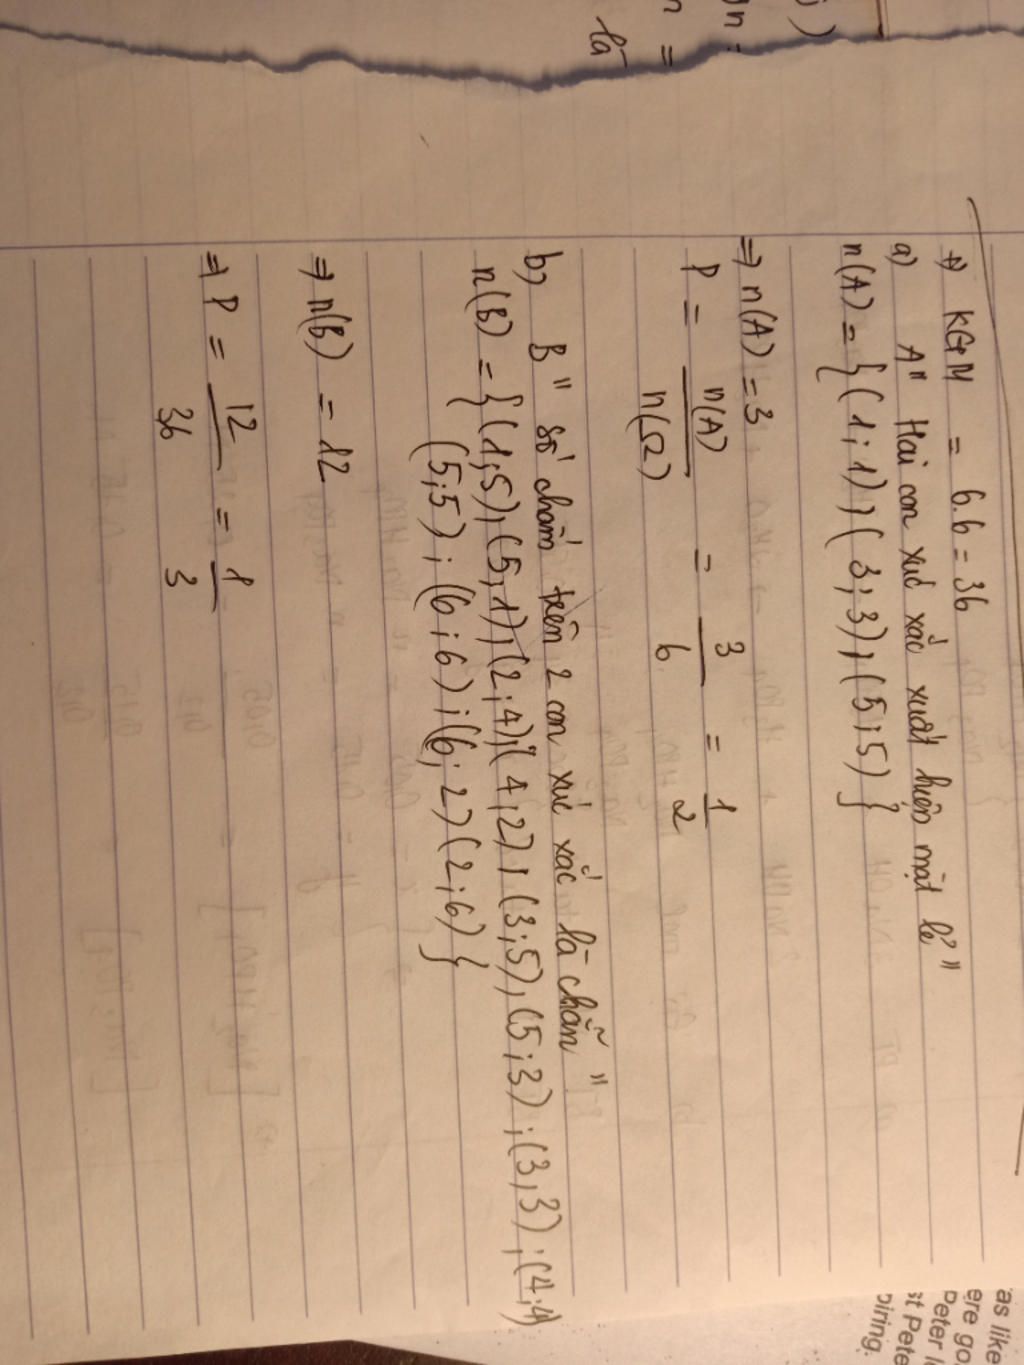 *) KGM = 6.6 = 36
a) A" Hai con xúc xắc xuất hiện mặt lẻ"
n(A) = {(1;1);(3;3);(5;5)}
=> n(A) = 3
P = n(A)/n(Ω) = 3/6 = 1/2
b) B" số chấm trên 2 con xúc xắc là chẵn"
n(B) = {(1;5);(5;1);(2;4);(4;2);(3;5);(5;3);(3;3);(4;4)
(5;5);(6;6);(6;2)(2;6)}
=> n(B) = 12
=> P = 12/36 = 1/3
là
as like
ere go
Peter
st Pete
piring.